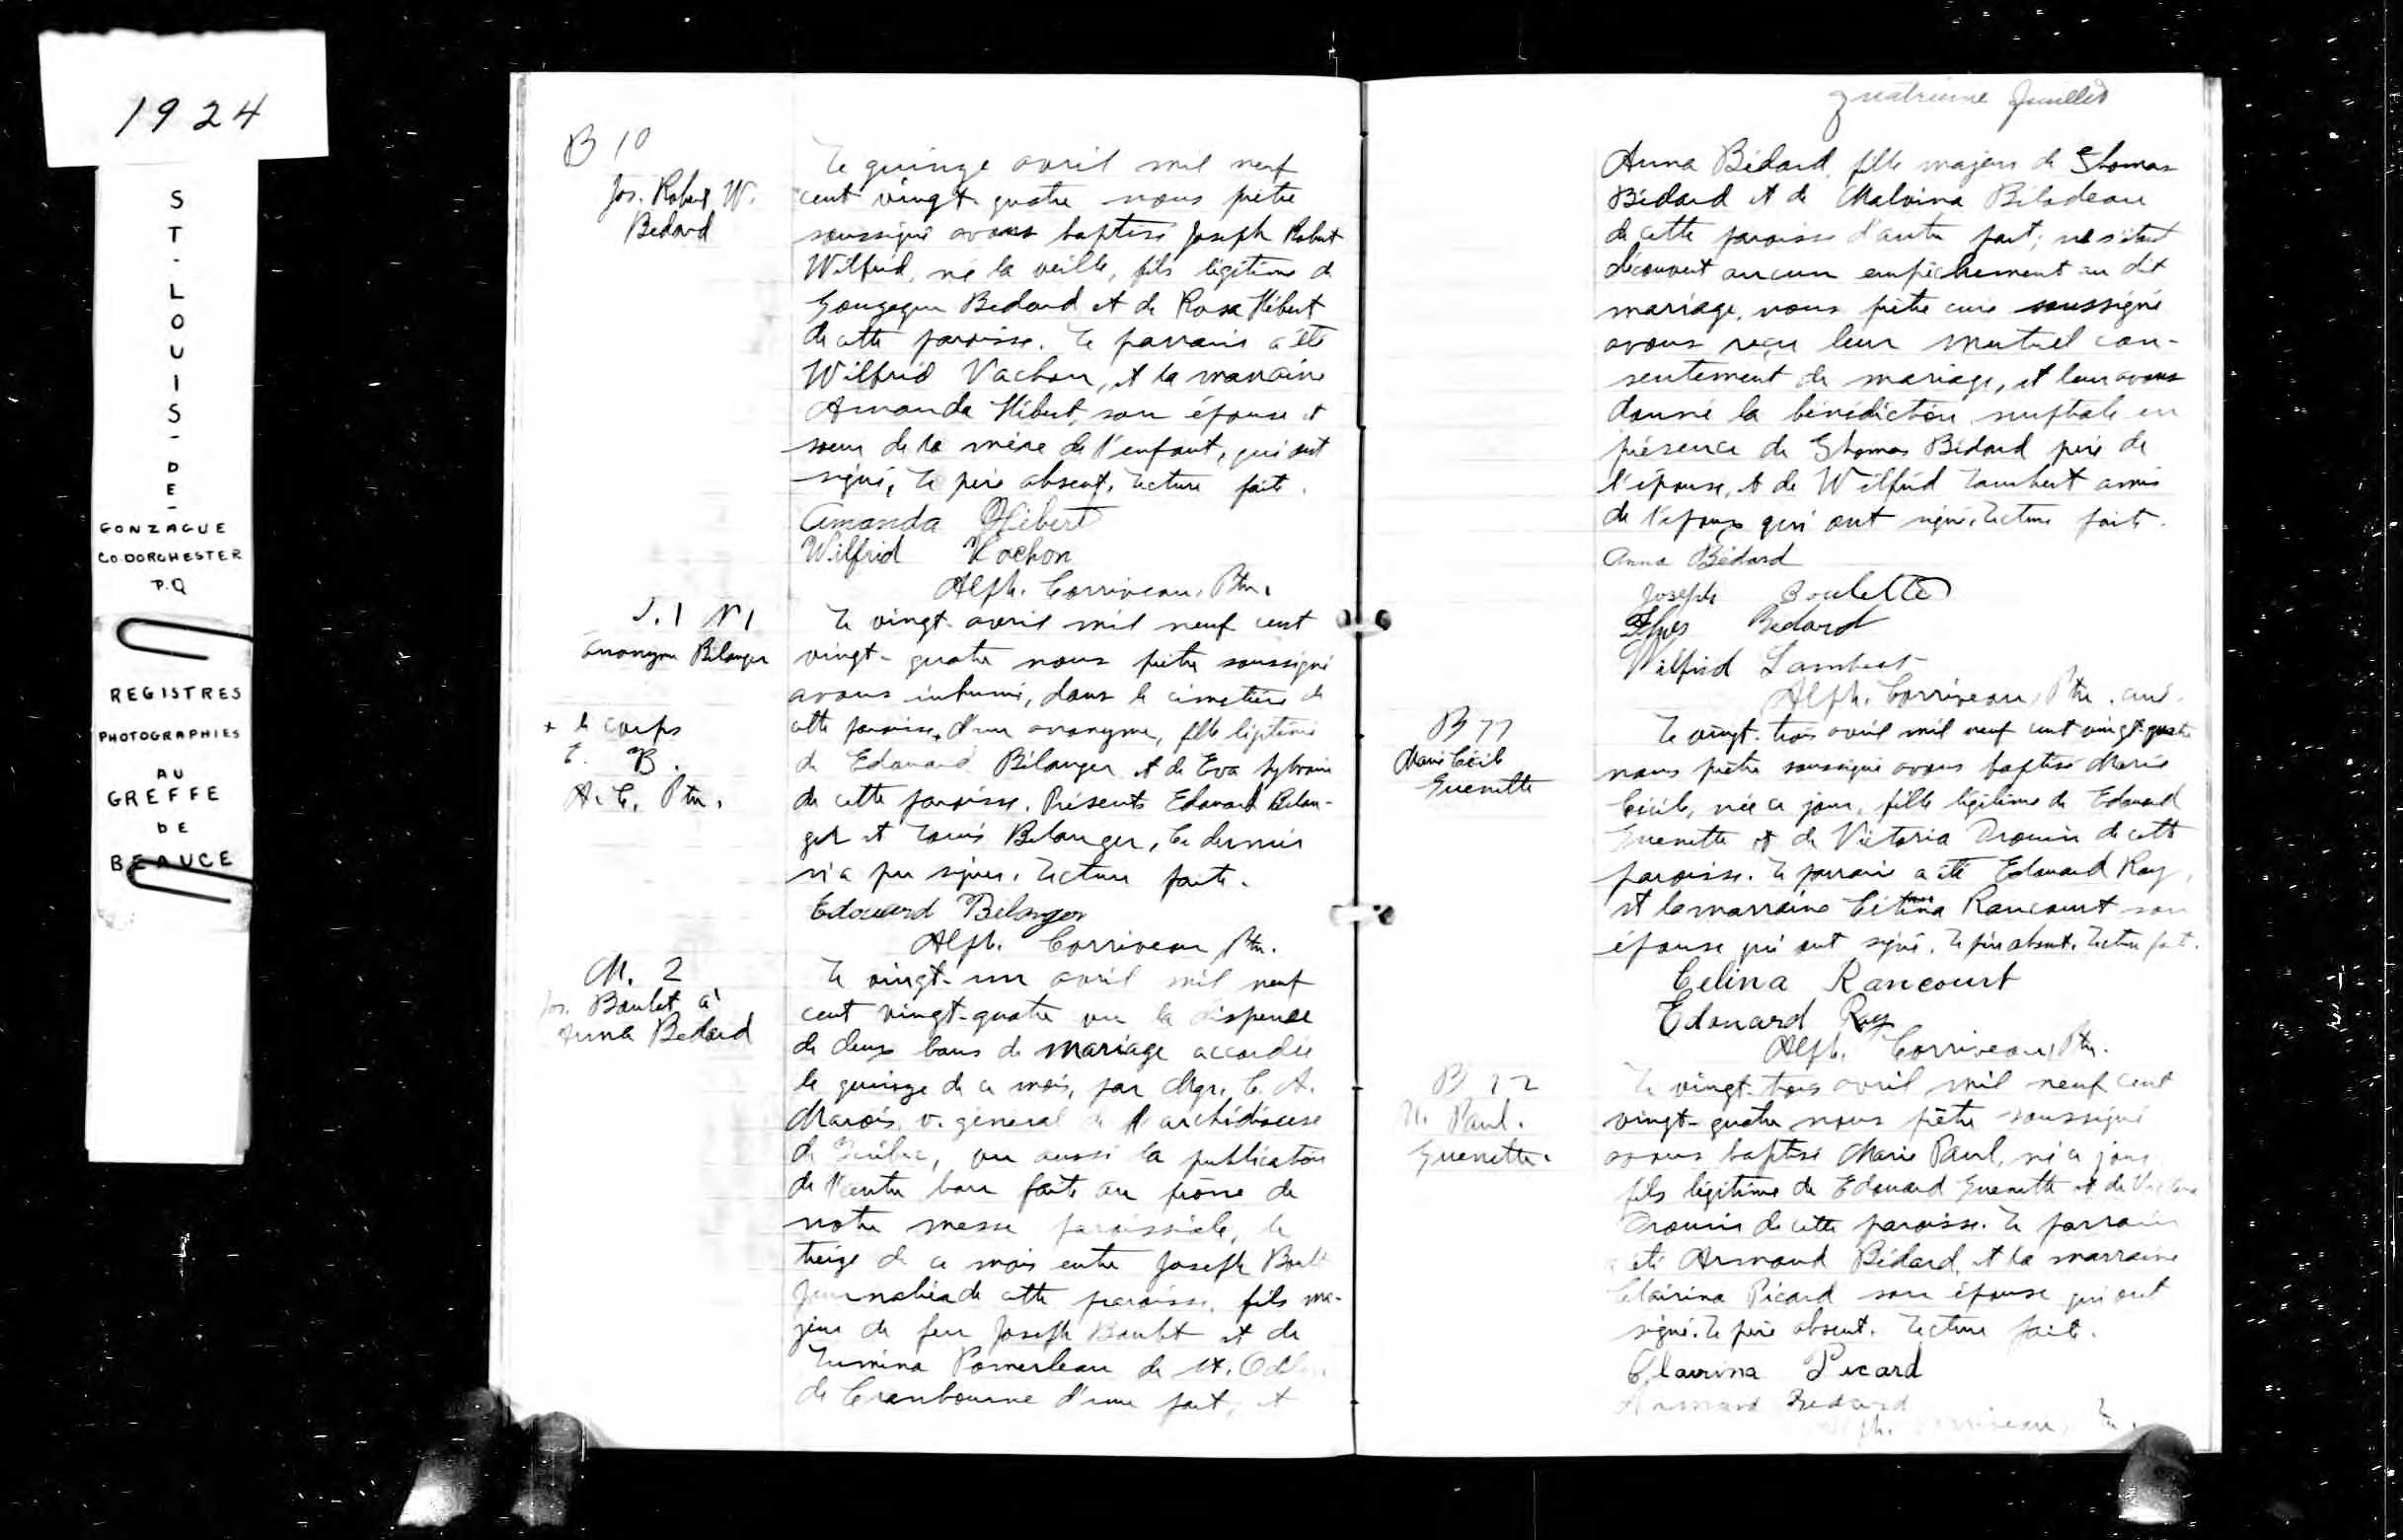 1924
ST. LOUIS-DE-
GONZAGUE
CO. DORCHESTER
P.Q
REGISTRES
PHOTOGRAPHIES
AU
GREFFE
DE
BEAUCE
B 10
Jos. Robert W.
Bedard
Le quinze avril mil neuf
cent vingt-quatre nous prêtre
soussigné avons baptisé Joseph Robert
Wilfrid, né la veille, fils légitime de
Gonzague Bedard et de Rosa Hébert
de cette paroisse. Le parrain a été
Wilfrid Vachon, et la marraine
Amanda Hébert, son épouse et
soeur de la mère de l'enfant, qui ont
signé, le père absent. Lecture faite.
Amanda Hébert
Wilfrid Vachon
Alph. Corriveau, Ptre.
S. 1 N 1
Anonyme Bélanger
Le vingt avril mil neuf cent
vingt-quatre nous prêtre soussigné
avons inhumé, dans le cimetière de
+ le corps
E. B.
A. C. Ptre.
cette paroisse, + d'un anonyme, fille légitime
de Edouard Bélanger et de Eva Sylvain
de cette paroisse. Présents Edouard Bélan-
ger et Louis Bélanger, ce dernier
n'a pu signer. Lecture faite.
Edouard Belanger
Alph. Corriveau Ptre.
M. 2
Jos. Boulet à
Anna Bedard
Le vingt-un avril mil neuf
cent vingt-quatre vu la dispense
de deux bans de mariage accordée
le quinze de ce mois, par Mgr. C. A.
Marois v. général de l'archidiocèse
de Québec, vu aussi la publication
de l'autre ban faite au prône de
notre messe paroissiale, le
treize de ce mois entre Joseph Boulet
journalier de cette paroisse, fils ma-
jeur de feu Joseph Boulet et de
Lumina Pomerleau de St. Odilon
de Cranbourne d'une part, et
quatrième feuillet
Anna Bédard, fille majeure de Thomas
Bédard et de Malvina Bilodeau
de cette paroisse d'autre part; ne s'étant
découvert aucun empêchement au dit
mariage, nous prêtre curé soussigné
avons reçu leur mutuel con-
sentement de mariage, et leur avons
donné la bénédiction nuptiale en
présence de Thomas Bédard père de
l'épouse, et de Wilfrid Lambert ami
de l'époux qui ont signé. Lecture faite.
Anna Bédard
Joseph Boulette
Bedard
Wilfrid Lambert
Alph. Corriveau, Ptre. curé.
B 11
Marie Cécile
Guenette
Le vingt-trois avril mil neuf cent vingt-quatre
nous prêtre soussigné avons baptisé Marie
Cécile, née ce jour, fille légitime de Edouard
Guenette et de Victoria Drouin de cette
paroisse. Le parrain a été Edouard Roy,
et la marraine Célina Rancourt son
épouse qui ont signé. Le père absent. Lecture faite.
Celina Rancourt
Edouard Roy
Alph. Corriveau, Ptre.
B 12
M. Paul.
Guenette.
Le vingt-trois avril mil neuf cent
vingt-quatre nous prêtre soussigné
avons baptisé Marie Paul, né ce jour
fils légitime de Edouard Guenette et de Victoria
Drouin de cette paroisse. Le parrain
a été Armand Bédard, et la marraine
Clairina Picard son épouse qui ont
signé. Le père absent. Lecture faite.
Claurina Picard
Armand Bedard
Alph. Corriveau, Ptre.